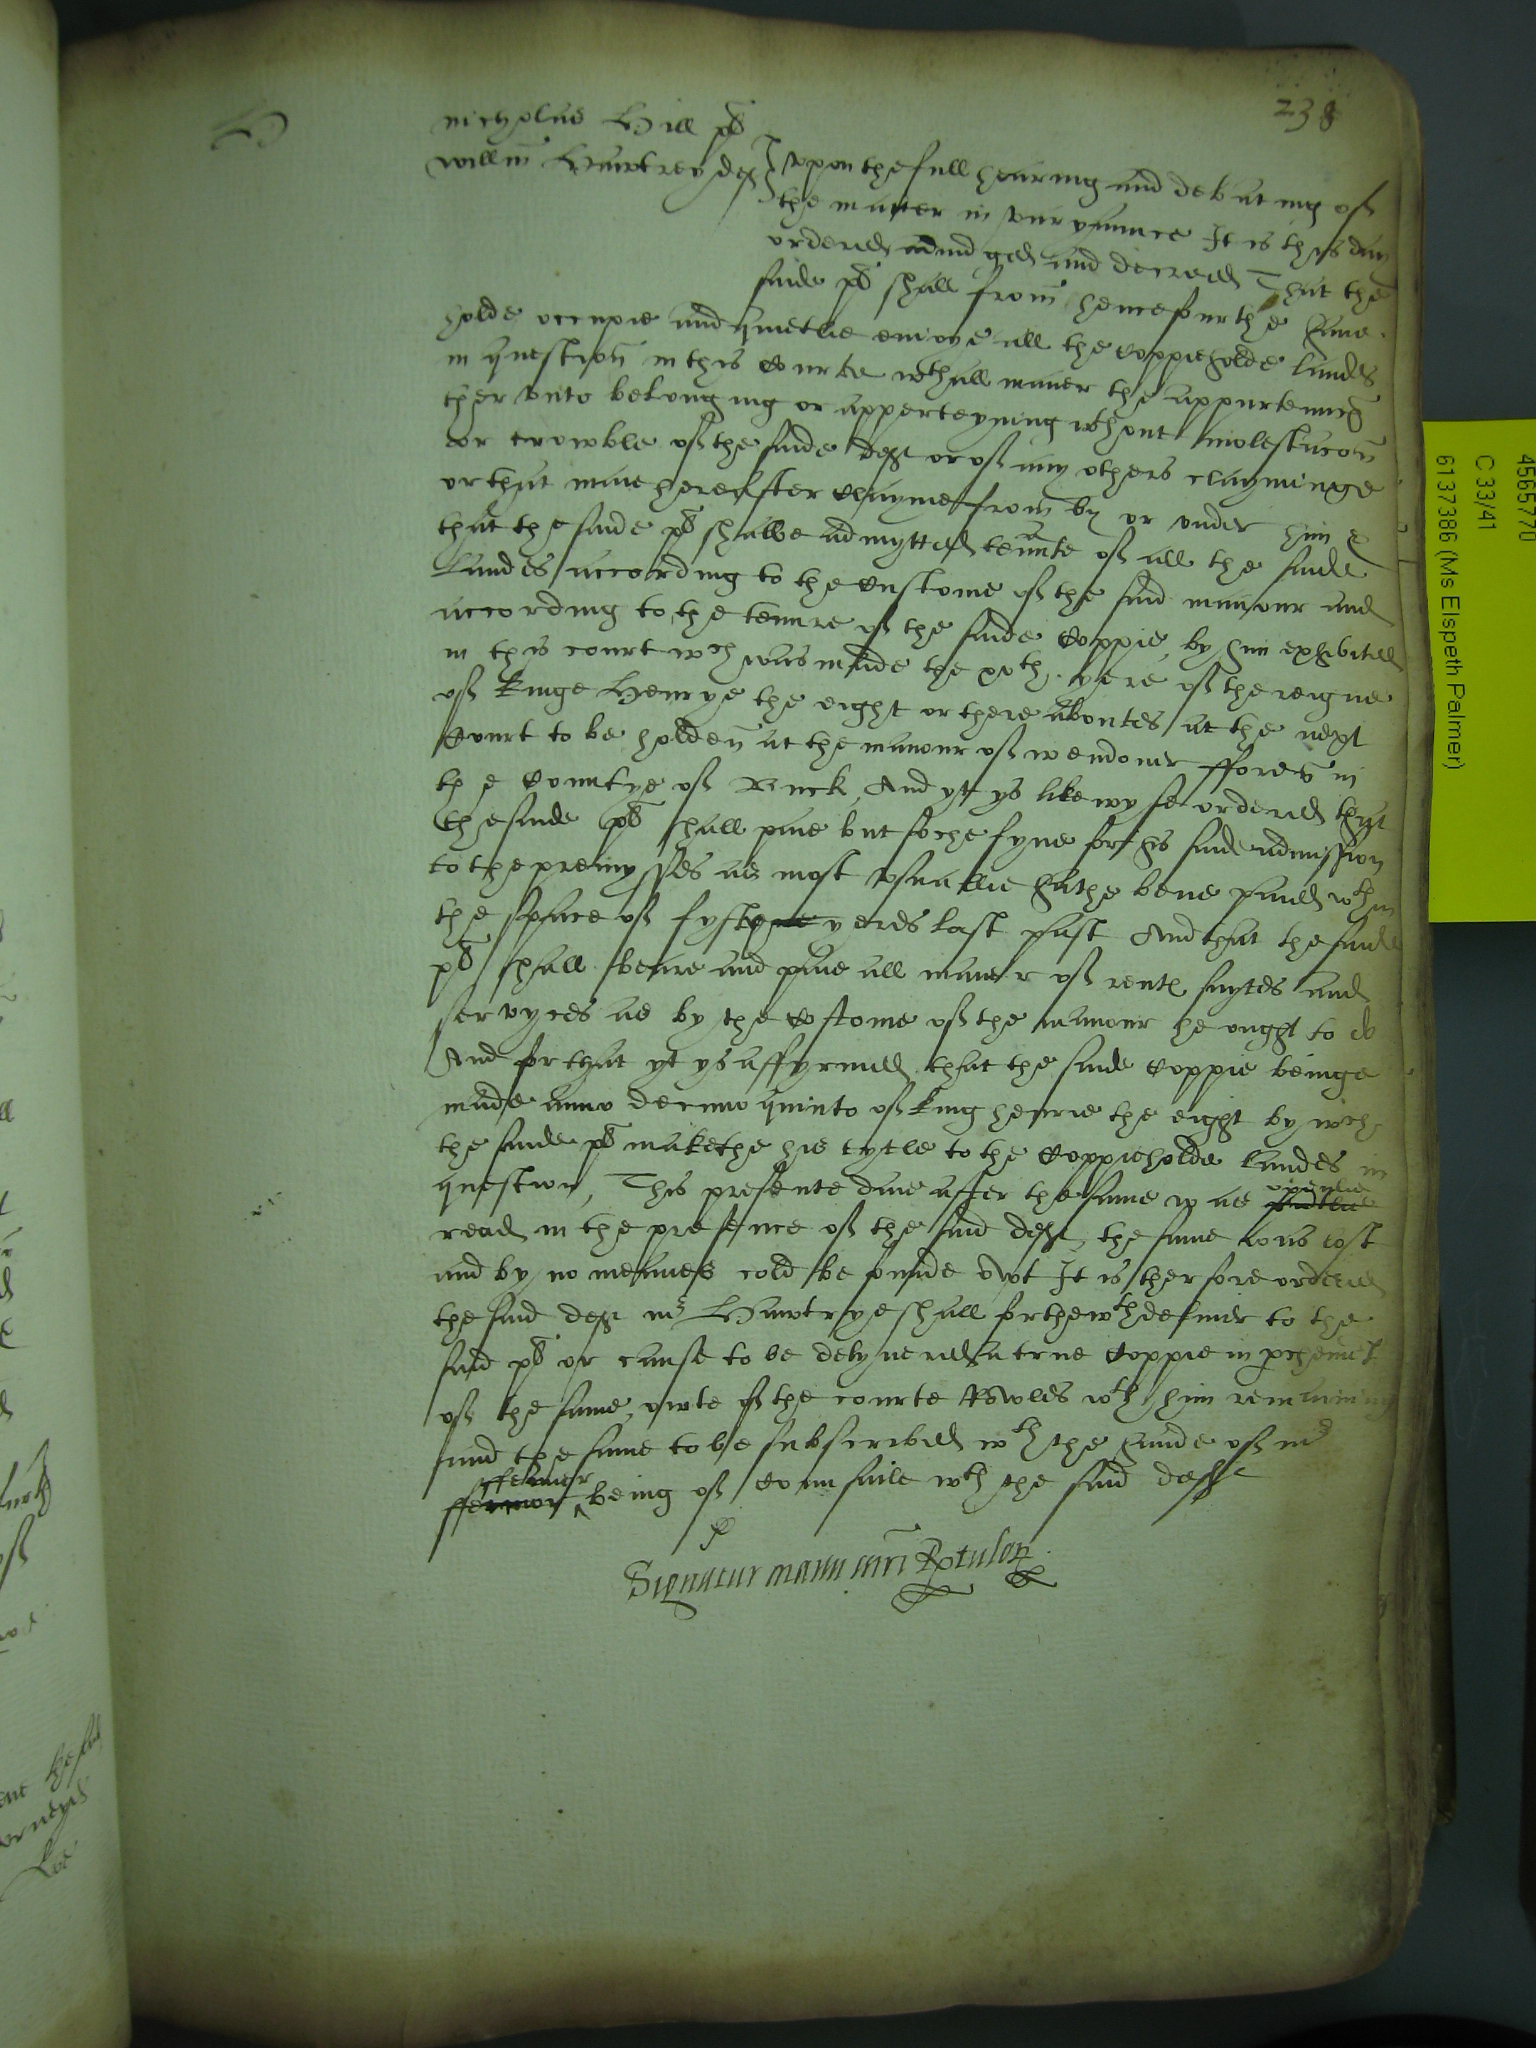 238
H
nicholus Hill pl
willm Hawtrey def
vpon the full hearing and debating of
the matter in varyaunce It is this day
ordered adiudged and decreed That the
saide pl shall from henceforthe haue
holde occupie and quietlie enioye all the coppieholde landes
in question in this courte wth all maner the appurtennces
ther vnto belonging or apperteyning wthout molestacon
or trowble of the saide deft or of any others clayminge
or that maie hereafter clayme from by or vnder him &
that the saide pl shalbe admytted tennte of all the saide
landes according to the custome of the said manour and
according to the tenure of the saide coppie by him exhibited
in this court wch was made the xvth yere of the reigne
of kinge Henrye the eight or there aboutes at the next
Court to be holden at the manour of wendover fforen in
the Countye of Buck, And yt ys likewyse ordered that
the saide pl shall paie but soche fyne for his said admission
to the premysses as most vsuallie hathe bene paied wthin
the space of fyfte yeres last past And that the saide
pl shall beare and paie all maner of rents suytes and
servyces as by the costome of the manour he ought to do
And for that yt ys affyrmed that the saide coppie beinge
made anno decimo quinto of king henrie the eight by wch
the saide pl makethe his tytle to the coppieholde landes in
question, This presente daie after the same was openlie
read in the presence of the said deft, the same was lost
and by no meanes cold be founde out It is therfore ordered
the said deft mr Hawtrye shall forthewth deliuer to the
said pl or cause to be delyuered a true coppie in pchemt
of the same, owte of the courte Rowles wth him remaining
and the same to be subscribed wth the hande of mr
being of counsaile wth the said deft
Signatur manu mri Rotulor
4565770
C 33/41
6137386 (Ms Elspeth Palmer)